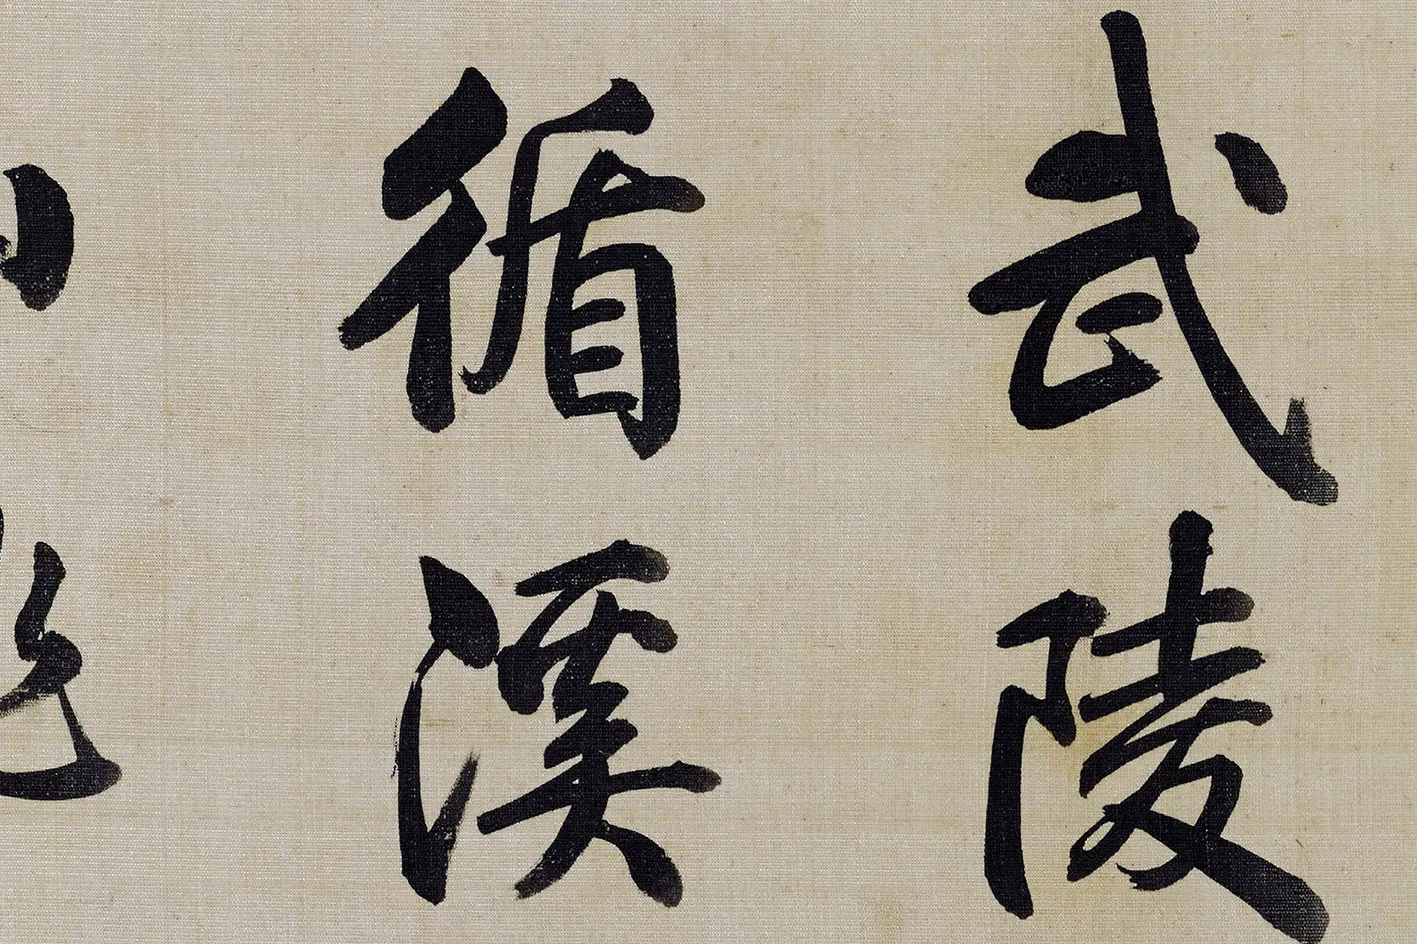 武陵
循溪